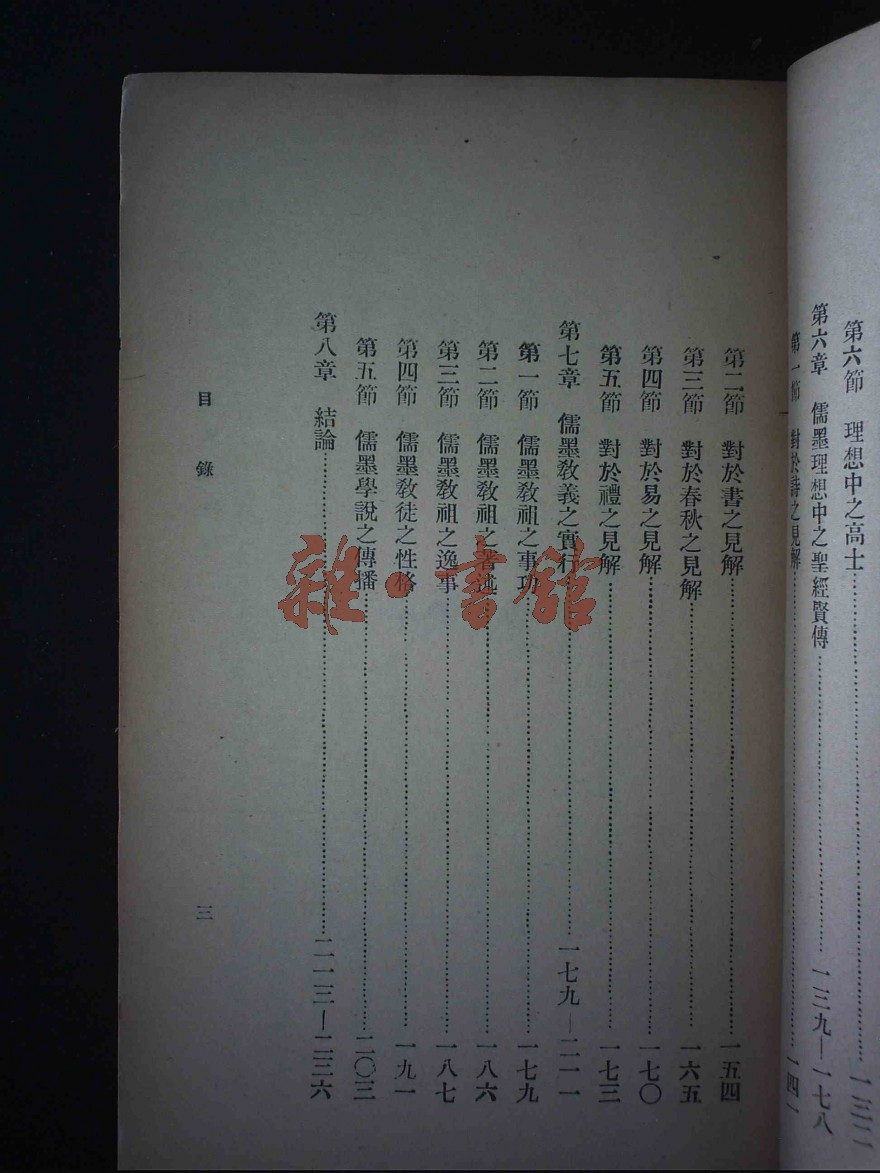 第六節　理想中之高士…………一三二
第六章　儒墨理想中之聖經賢傳…………一三九—一七八
第一節　對於詩之見解…………一四一
第二節　對於書之見解…………一五四
第三節　對於春秋之見解…………一六五
第四節　對於易之見解…………一七〇
第五節　對於禮之見解…………一七三
第七章　儒墨教義之實行…………一七九—二一一
第一節　儒墨教祖之事功…………一七九
第二節　儒墨教祖之著述…………一八六
第三節　儒墨教祖之逸事…………一八七
第四節　儒墨教徒之性格…………一九一
第五節　儒墨學說之傳播…………二〇三
第八章　結論…………二一三—二三六
目錄
三
雜·書館